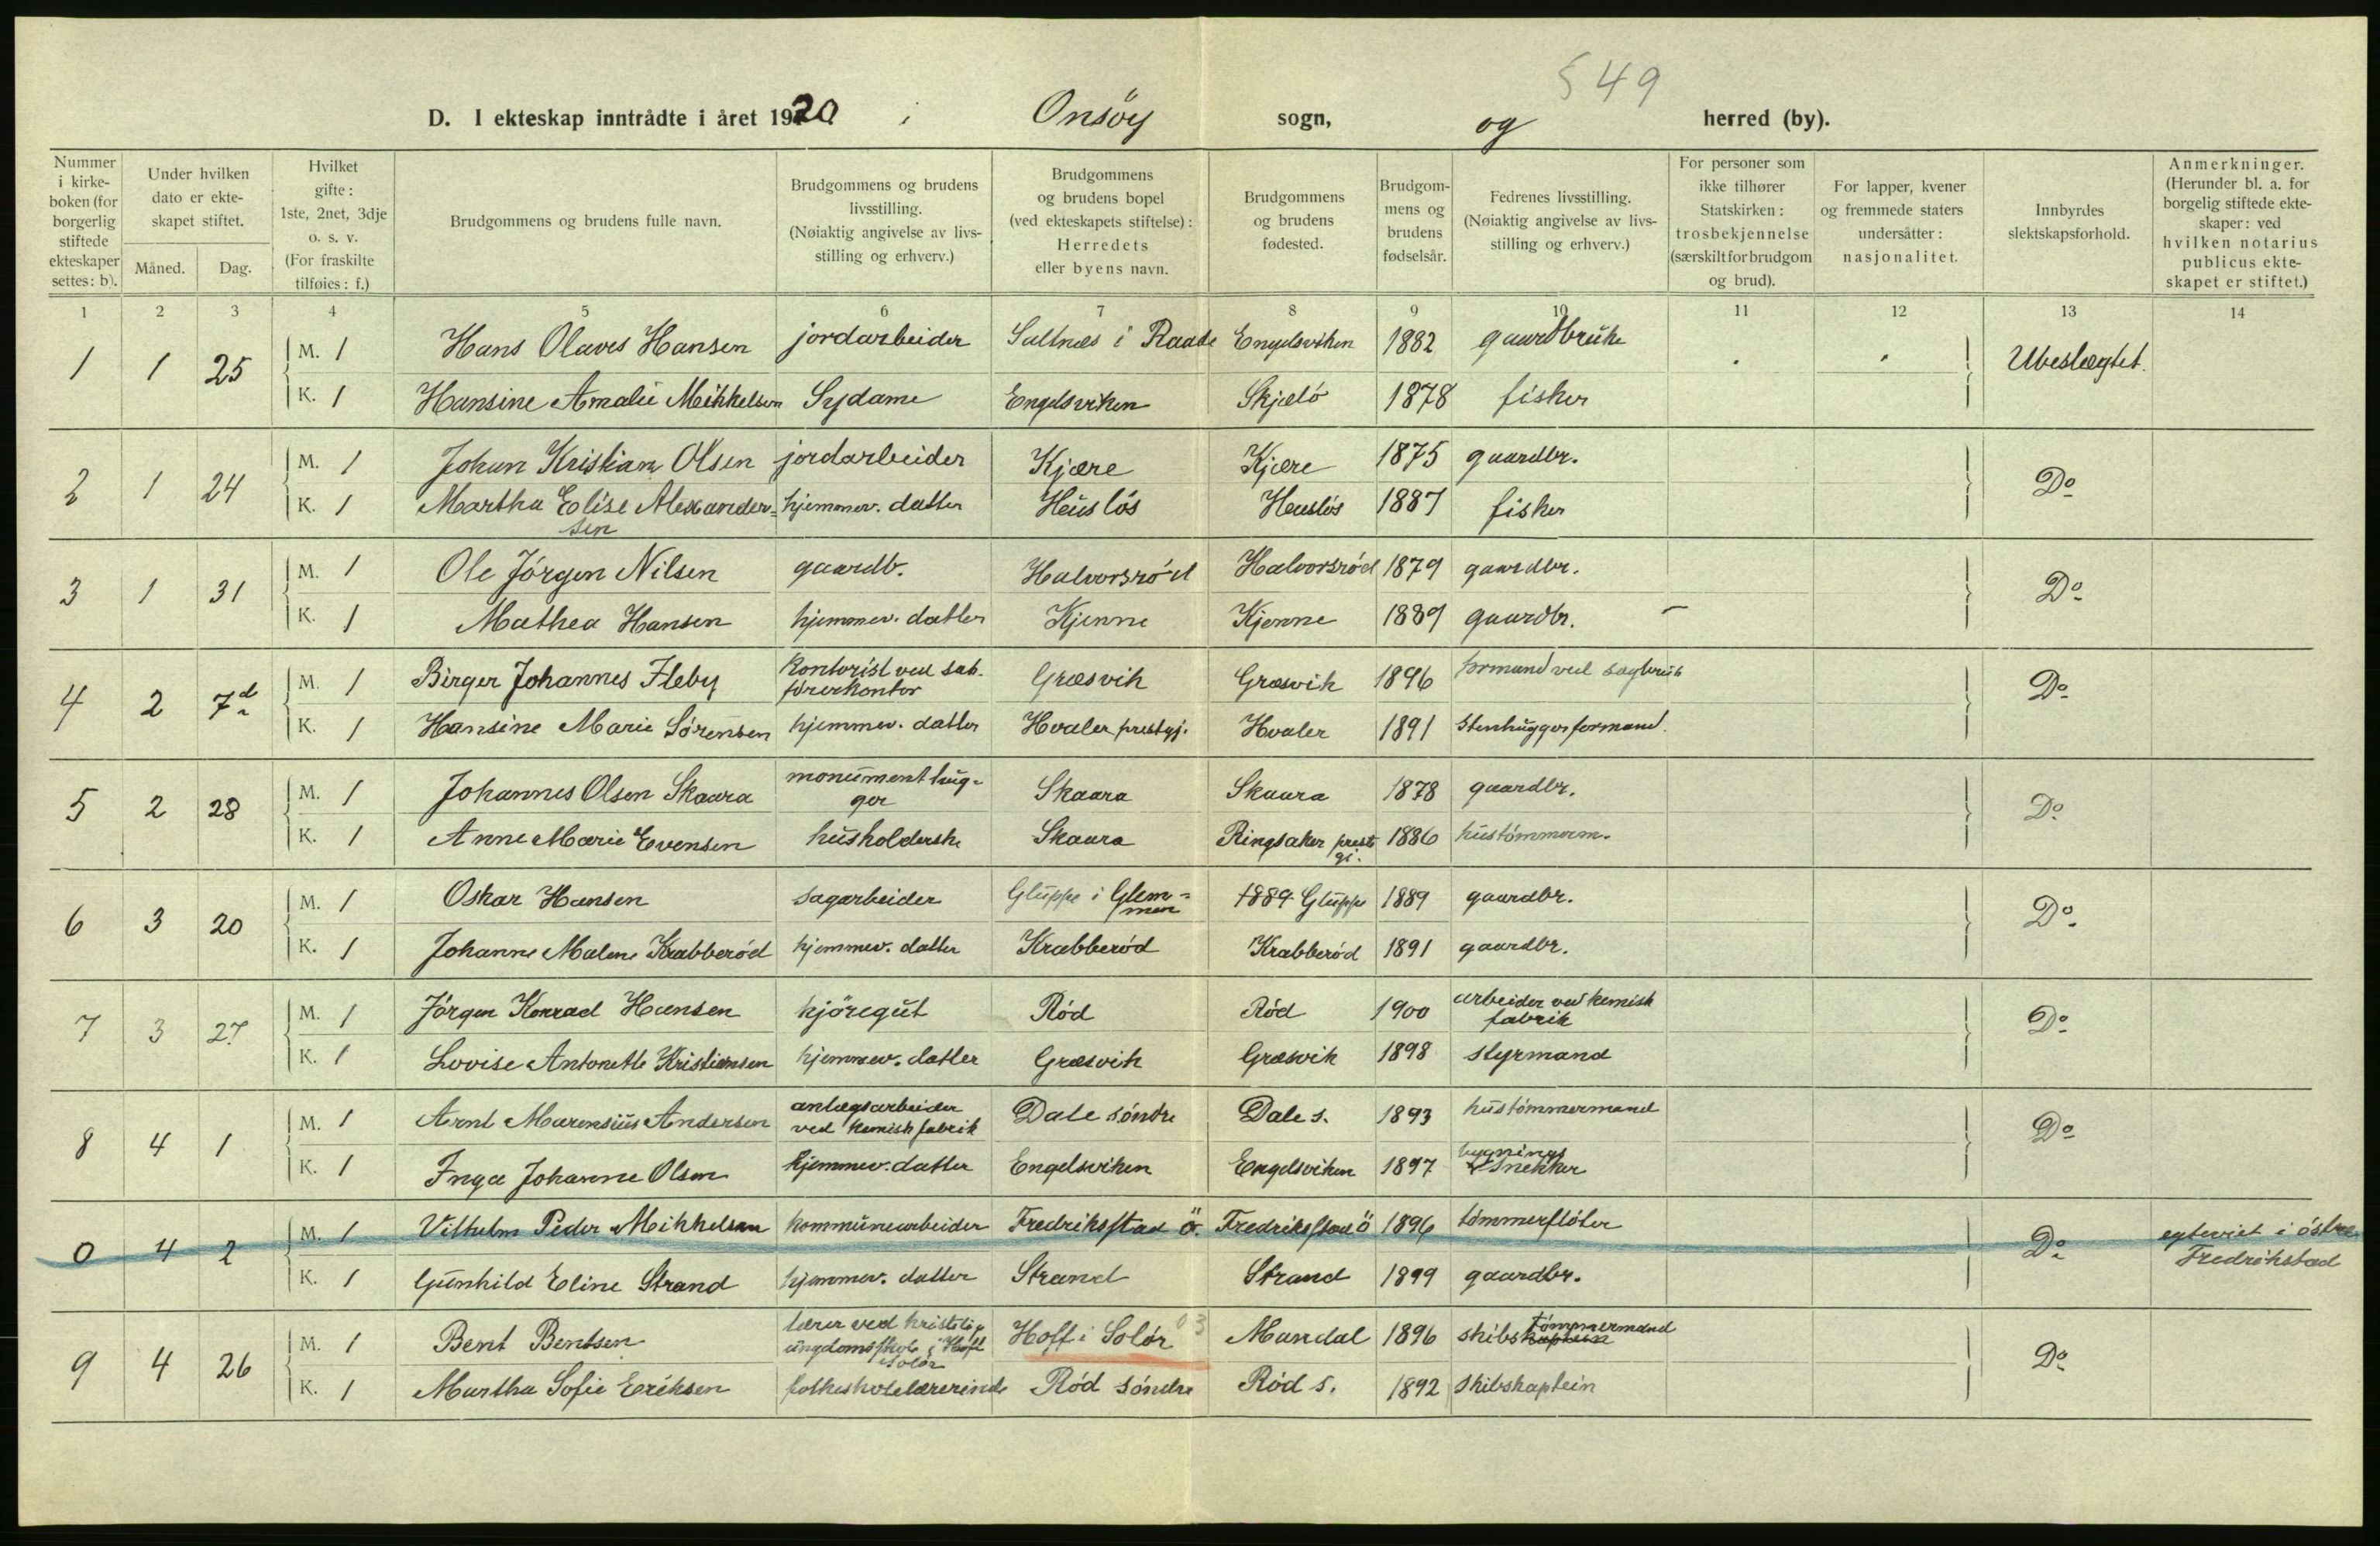 § 49
D. I ekteskap inntrådte i året 1920 i Onsöy sogn, og herred (by).
Nummer i kirkeboken (for borgerlig stiftede ekteskaper settes: b).
Under hvilken dato er ekteskapet stiftet.
Måned. Dag.
Hvilket gifte: 1ste, 2net, 3dje o. s. v. (For fraskilte tilføies: f.)
Brudgommens og brudens fulle navn.
Brudgommens og brudens livsstilling. (Nøiaktig angivelse av livsstilling og erhverv.)
Brudgommens og brudens bopel (ved ekteskapets stiftelse): Herredets eller byens navn.
Brudgommens og brudens fødested.
Brudgommens og brudens fødselsår.
Fedrenes livsstilling. (Nøiaktig angivelse av livsstilling og erhverv.)
For personer som ikke tilhører Statskirken: trosbekjennelse (særskilt for brudgom og brud).
For lapper, kvener og fremmede staters undersåtter: nasjonalitet.
Innbyrdes slektskapsforhold.
Anmerkninger. (Herunder bl. a. for borgelig stiftede ekteskaper: ved hvilken notarius publicus ekteskapet er stiftet.)
1 2 3 4 5 6 7 8 9 10 11 12 13 14
1 1 25 M. 1 Hans Olaves Hansen jordarbeider Saltnæs i Raade Engelsviken 1882 gaardbruke Ubeslægtet.
K. 1 Hansine Amalie Mikkelsen Sydame Engelsviken Skjælö 1878 fisker
2 1 24 M. 1 Johan Kristian Olsen jordarbeider Kjære Kjære 1875 gaardbr. Do
K. 1 Martha Elise Alexander= hjemmev. datter Heuslös Heuslös 1887 fisker
sen
3 1 31 M. 1 Ole Jörgen Nilsen gaardb. Halvorsröd Halvorsröd 1879 gaardbr. Do
K. 1 Mathea Hansen hjemmev. datter Kjenne Kjenne 1889 gaardbr.
4 2 7d M. 1 Birger Johannes Fleby Kontorist ved sak- förerkontor Græsvik Græsvik 1896 formand ved sagbruk Do
K. 1 Hansine Marie Sörensen hjemmev. datter Hvaler prestgj. Hvaler 1891 Stenhuggerformand.
5 2 28 M. 1 Johannes Olsen Skaara monumenthug- ger Skaara Skaara 1878 gaardbr. Do
K. 1 Anne Marie Evensen husholderske Skaara Ringsaker prest- gj. 1886 hustömmerm.
6 3 20 M. 1 Oskar Hansen sagarbeider Gluppe i Glem= men 1889 Gluppe 1889 gaardbr. Do.
K. 1 Johanne Malene Krabberöd hjemmev. datter Krabberöd Krabberöd 1891 gaardbr.
7 3 27 M. 1 Jörgen Konrad Hansen kjöregut Röd Röd 1900 arbeider ved kemisk fabrik Do
K. 1 Lovise Antonette Kristiansen hjemmev. datter Græsvik Græsvik 1898 styrmand
8 4 1 M. 1 Arnt Marensius Andersen anlægsarbeider ved kemisk fabrik Dale söndre Dale s. 1893 hustömmermand Do
K. 1 Inga Johanne Olsen hjemmev. datter Engelsviken Engelsviken 1897 bygnings snekker
0 4 2 M. 1 Vilhelm Peder Mikkelsen kommunearbeider Fredriksstad Ö. Fredriksstad Ö 1896 tömmerflöter Do egteviet i östre Fredrikstad
K. 1 Gunhild Eline Strand hjemmev. datter Strand Strand 1899 gaardbr.
9 4 26 M. 1 Bent Bentsen lærer ved kristelig ungdomsskole i Hoff Solör Hoff i Solör 03 Mandal 1896 skibskaptein tömmermand Do
K. 1 Martha Sofie Eriksen folkeskolelærerinde Röd söndre Röd s. 1892 skibskaptein